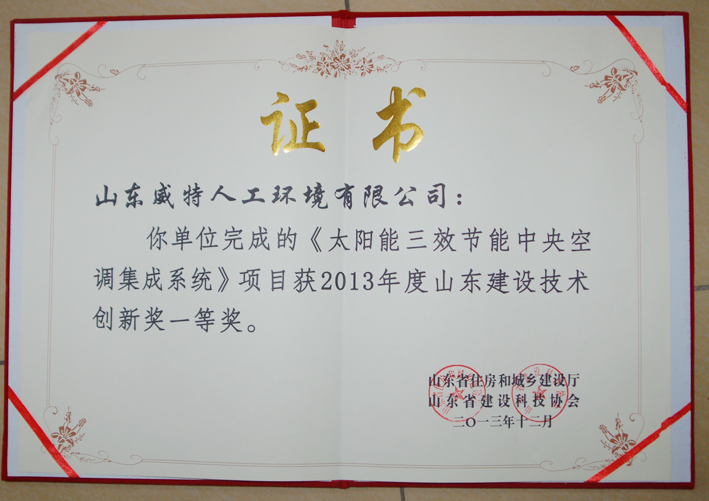 证书
山东威特人工环境有限公司：
你单位完成的《太阳能三效节能中央空
调集成系统》项目获2013年度山东建设技术
创新奖一等奖。
山东省住房和城乡建设厅
山东省建设科技协会
二〇一三年十二月